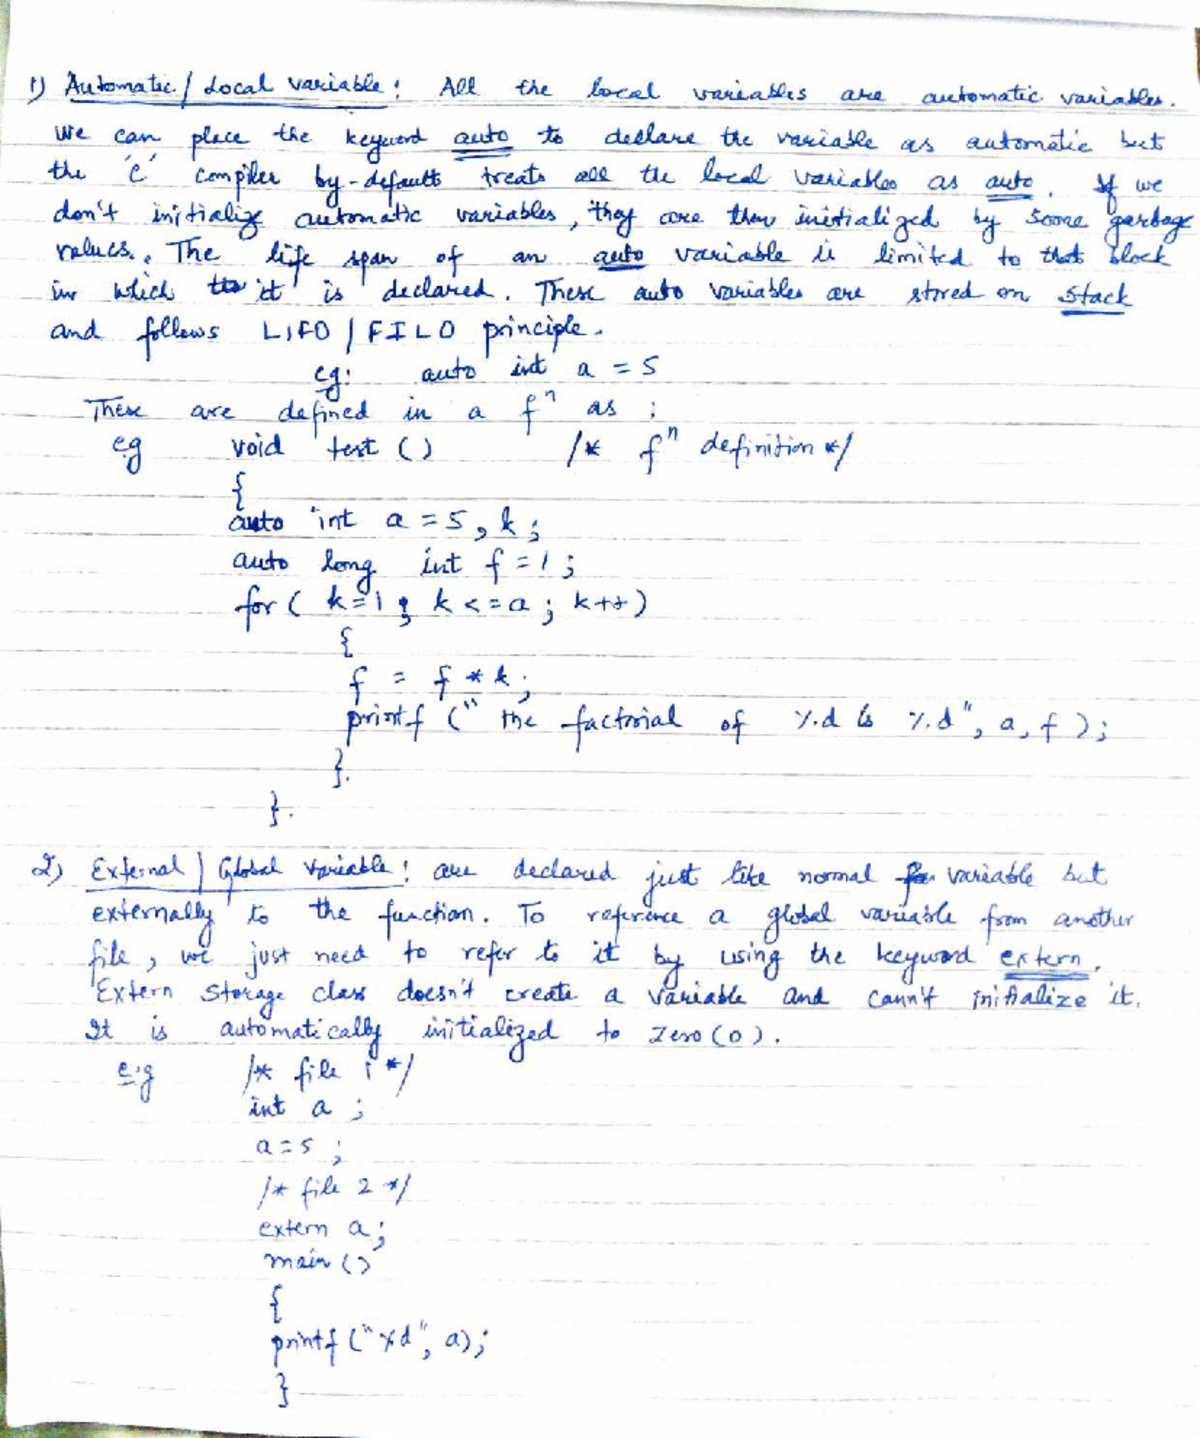 1) Automatic / Local variable : All the local variables are automatic variables.
We can place the keyword auto to declare the variable as automatic but
the 'c' compiler by-default treats all the local variables as auto. If we
don't initialize automatic variables, they are then initialized by some garbage
values. The life span of an auto variable is limited to that block
in which it is declared. These auto variables are stored on stack
and follows LIFO / FILO principle.
eg: auto int a = 5
These are defined in a fⁿ as :
eg void test () /* fⁿ definition */
{
auto int a = 5, k;
auto long int f = 1 ;
for ( k=1 ; k <= a ; k++)
{
f = f * k ;
printf (" the factorial of %d is %d", a, f );
}.
}.
2) External / Global Variable : are declared just like normal variable but
externally to the function. To reference a global variable from another
file, we just need to refer to it by using the keyword extern.
Extern storage class doesn't create a variable and cann't initialize it.
It is automatically initialized to zero (0).
e.g /* file 1 */
int a ;
a = 5 ;
/* file 2 */
extern a;
main ()
{
printf ("%d", a);
}